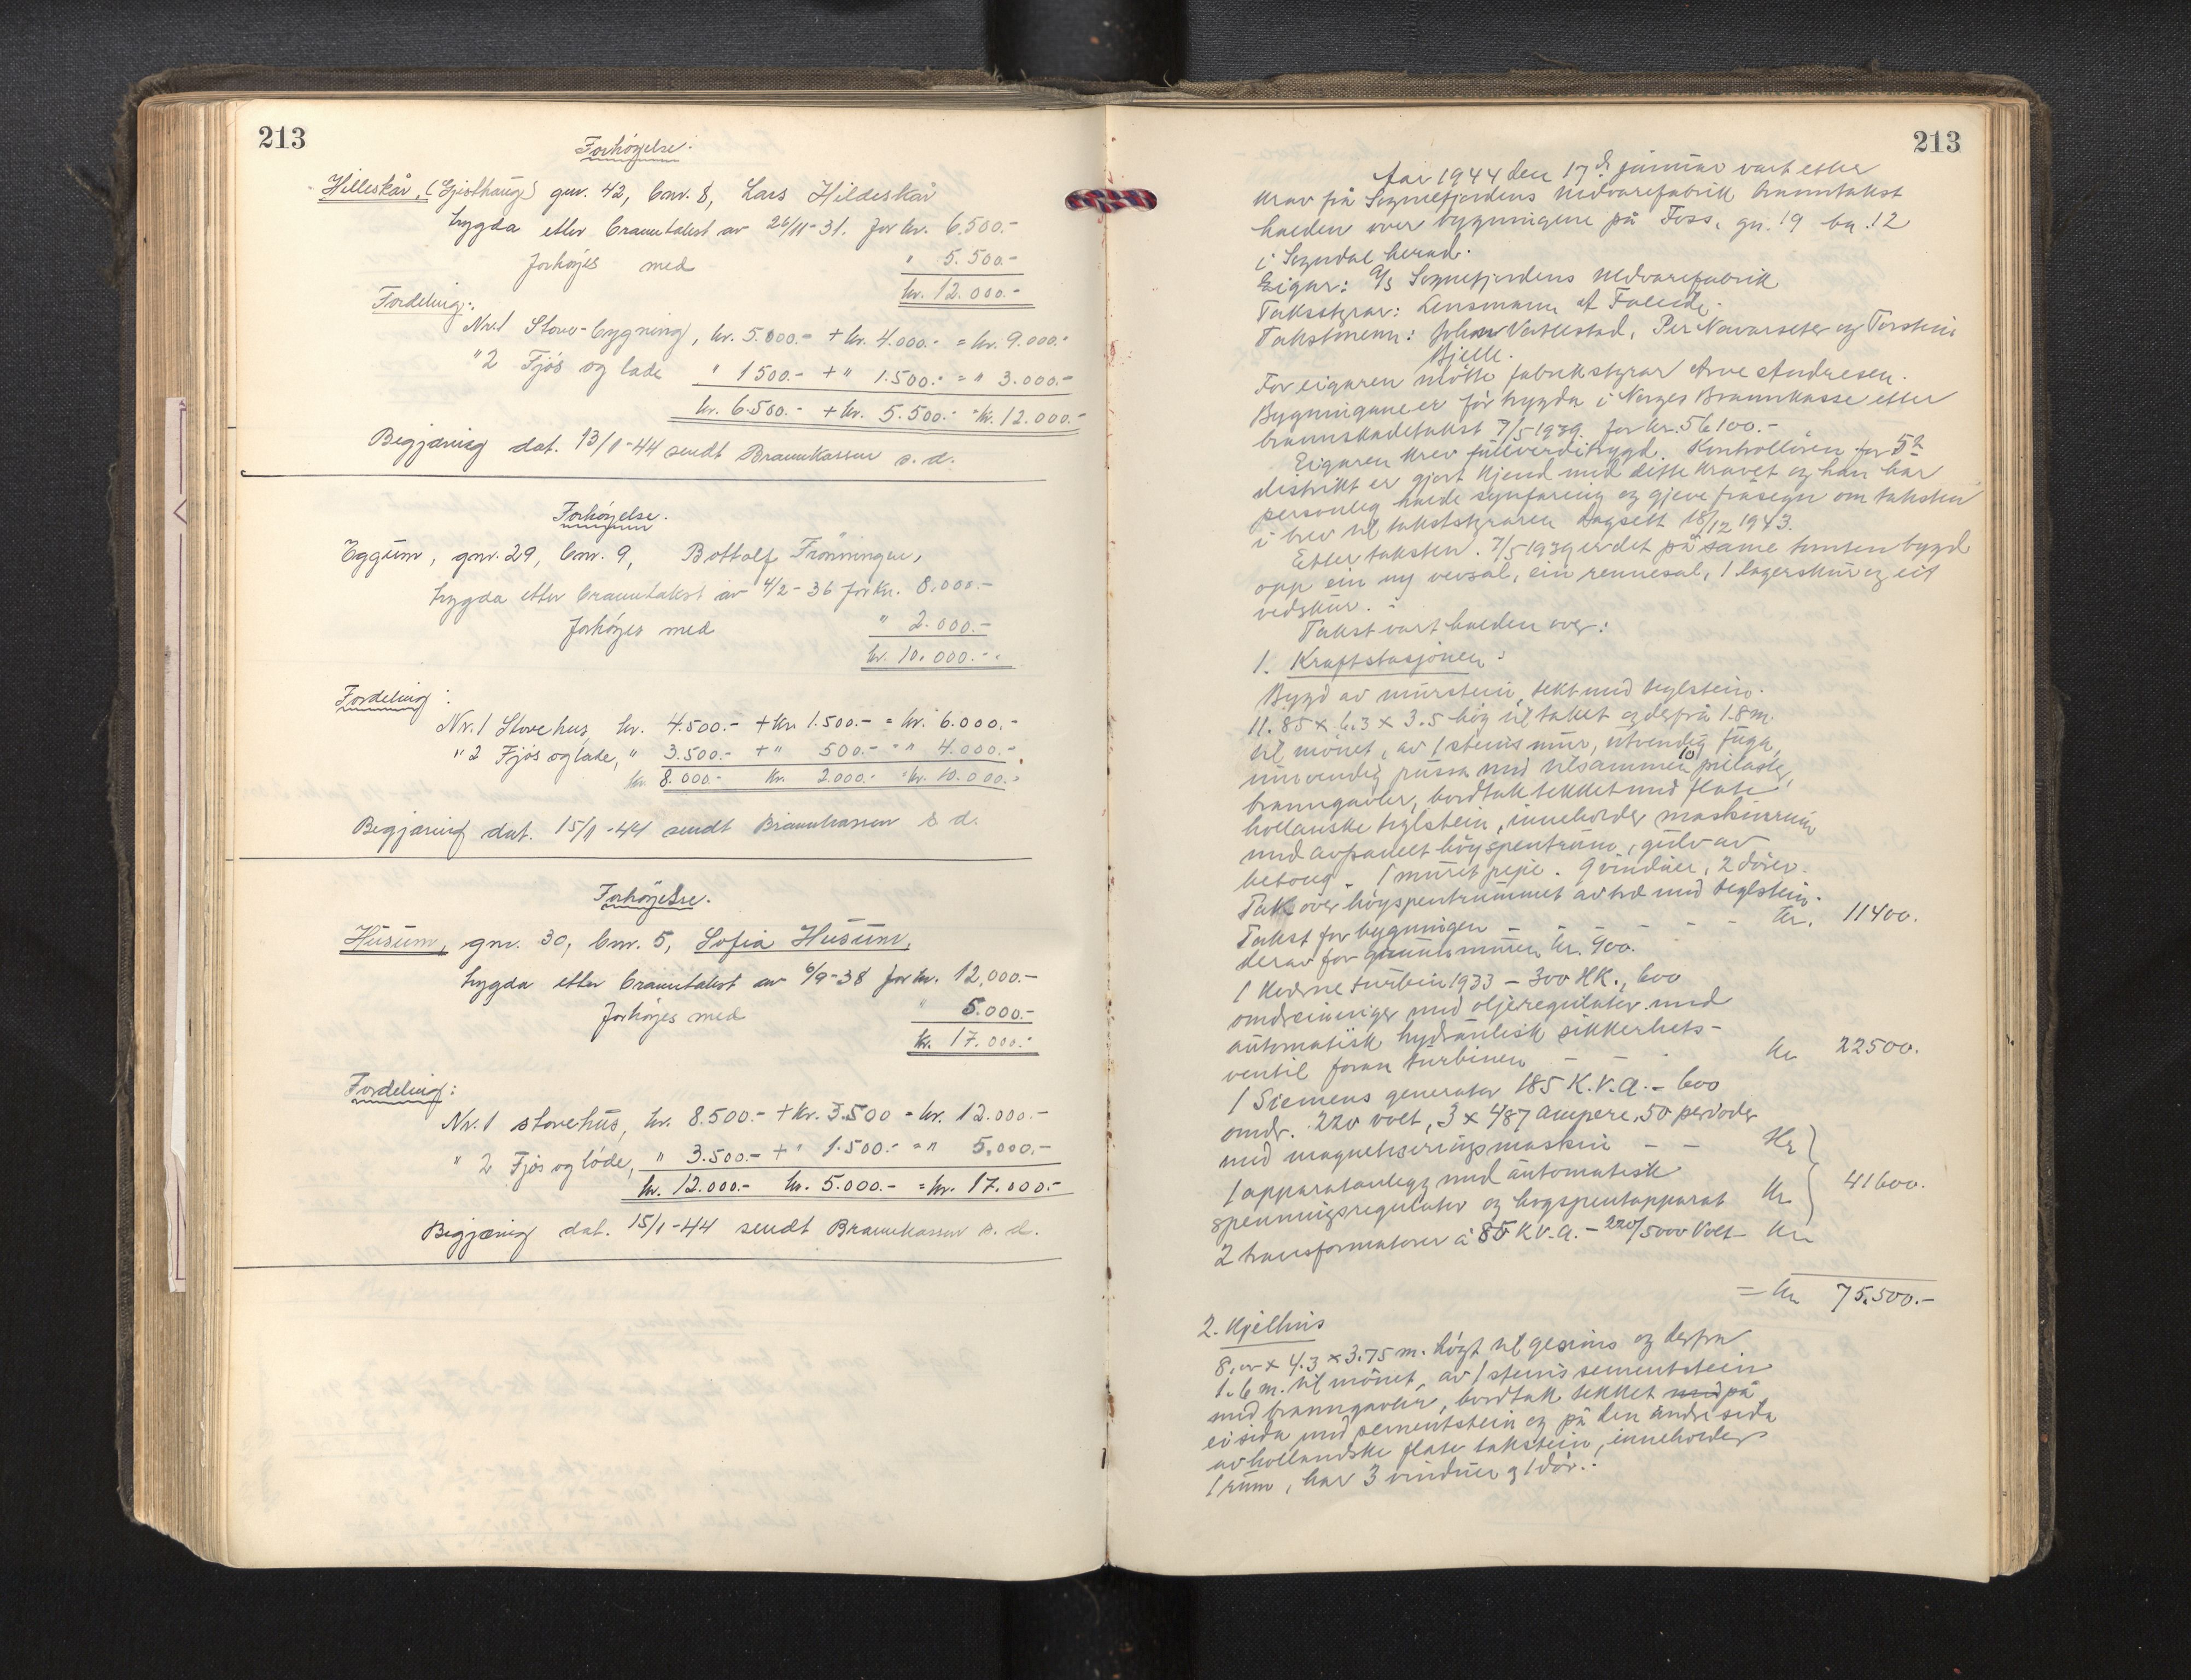 213
Forhøyelse:
Hilleskår, (Gjösthaug) gnr. 42, bnr. 8, Lars Hildeskår
trygda etter branntakst av 26/11-31. for kr. 6.500.-
forhøyes med " 5.500.-
kr. 12.000.-
Fordeling:
Nr. 1 Stove-bygning, kr. 5.000.- + kr. 4.000.- = kr. 9.000.-
" 2 Fjös og lade " 1500.- + " 1.500.- = " 3.000.-
kr. 6.500.- + kr. 5.500.- = kr. 12.000.-
Begjæring dat. 13/1-44 sendt Brannkassen s. d.
Forhøyelse.
Eggum, gnr. 29, bnr. 9, Bottolf Frønningen,
trygda etter branntakst av 4/2-36 for kr. 8.000.-
forhøyes med " 2.000.-
kr. 10.000.-
Fordeling:
Nr. 1 Stovehus, kr. 4.500.- + kr. 1.500.- = kr. 6.000.-
" 2 Fjös og lade, " 3.500.- + " 500.- = " 4.000.-
kr. 8.000.- kr. 2.000.- = kr. 10.000.-
Begjæring dat. 15/1-44 sendt Brannkassen s. d.
Forhøyelse.
Husum, gnr. 30, bnr. 5, Sofia Husum,
trygda etter branntakst av 6/9-38 for kr. 12,000.-
forhøyes med " 5.000.-
kr. 17.000.-
Fordeling:
Nr. 1 stovehus, kr. 8.500.- + kr. 3.500 = kr. 12.000.-
" 2 Fjös og löde, " 3.500.- + " 1.500.- = " 5,000.-
kr. 12.000.- kr. 5.000.- = kr. 17.000.-
Begjæring dat. 15/1-44 sendt Brannkassen s. d.
213
Aar 1944 den 17d januar vart etter
krav frå Sognefjordens Vedvarefabrik branntakst
halden over bygningene på Foss, gn. 19 bn. 12
i Sogndal herad.
Eigar: A/s Sognefjordens Vedvarefabrik
Takstyrar: Lensmann A Falede.
Takstmenn: Johan Vatlestad, Per Navarseter og Torstein
Bjelle.
For eigaren møtte fabrikstyrar Arve Andresen.
Bygningane er før trygda i Norges Brannkasse etter
brannskadetakst 7/5 1939 for kr. 56100.-
Eigaren krev fullverditrygd. Kontrolløren for 5te
distrikt er gjort kjend med dette kravet og han har
personleg havde synfaring og gjeve fråsegn om taksten
i brev til takststyraren dagsett 18/12 1943.
Etter taksten 7/5 1939 er det på same tomten bygd
opp ein ny vevsal, ein rennesal, 1 lagerskur og eit
vedskur.
Takst vart halden over:
1. Kraftstasjonen:
Bygd av murstein, tekt med teglstein.
11.85 x 6.3 x 3.5 høg til taket og derfrå 1.8 m.
til mønet, av 1 steins mur, utvendig fuga,
innvendig pussa med tilsammen 10 pilaster,
branngavler, bordtak tekket med flate
hollanske teglstein, inneholder maskinrum
med avpanelt høyspentrum, gulv av
betong. 1 muret pipe. 9 vinduer, 2 dører.
Tak over høyspentrummet av tre med teglstein.
Takst for bygningen - - - - kr. 11400.
derav for grunnmuren kr. 900.
1 Kværne turbin 1933 - 300 HK., 600
omdreininger med oljeregulator med
automatisk hydraulisk sikkerhets-
ventil foran turbinen - - - kr 22500.
1 Siemens generator 185 K.V.A. - 600
omdr. 220 volt, 3 x 487 ampere, 50 perioder
med magnetiseringsmaskin - - Kr
1 apparatanlegg med automatisk
spenningsregulator og høgspentapparat Kr 41600.
2 transformatorer à 85 K.V.A. - 220/5000 Volt - Kr
= kr 75.500.-
2. Kjelhus
x 4.3 x 3.75 m. høgt til gesims og derfra
1.6 m. til mønet, av 1 steins sementstein
med branngavler, bordtak tekket med på
ei sida med sementstein og på den andre sida
av hollandske flate takstein, inneholder
1 rum, har 3 vinduer og 1 dør.